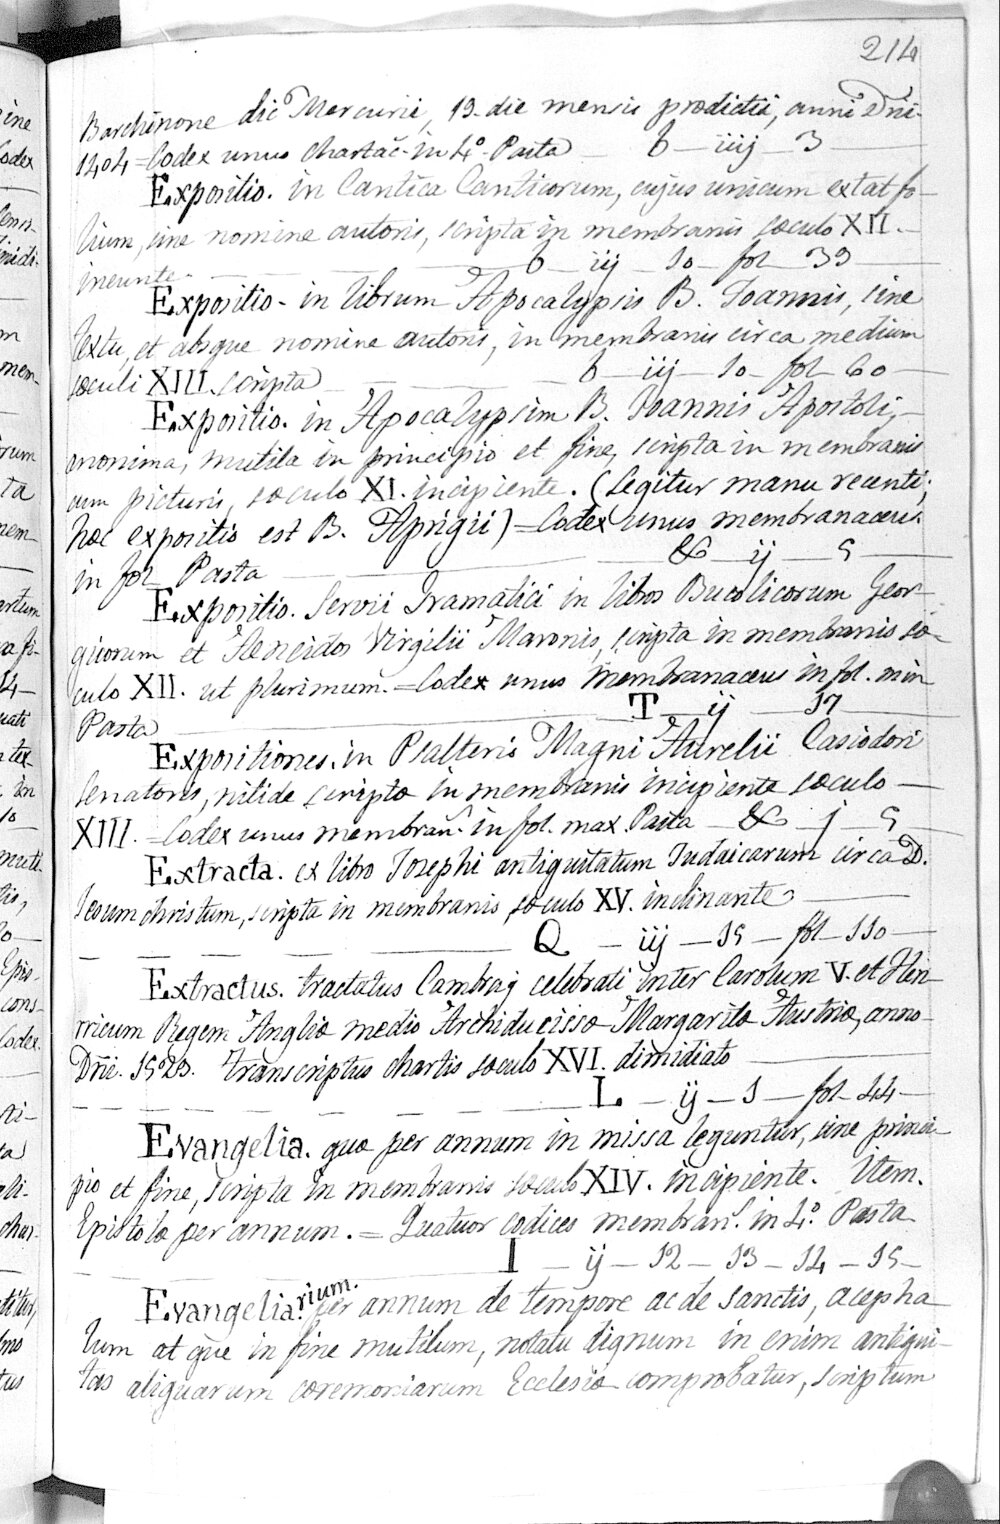 214
Barchinone die Mercurii, 19. die mensis prædicti, anni Dñi.
1404 = Codex unus chartac. in 4º. Pasta — b — iiij — 3
Expositio. in Cantica Canticorum, cujus unicum extat fo-
lium, sine nomine autoris, scripta in membranis sæculo XII.
ineunte. — b — iij — 10 — fol 39
Expositio. in librum Apocalypsis B. Joannis, sine
textu, et absque nomine autoris, in membranis circa medium
sæculi XIII. scripta — b — iij — 10 — fol 60
Expositio. in Apocalypsim B. Joannis Apostoli,
anonima, mutila in principio et fine, scripta in membranis
cum picturis, sæculo XI. incipiente. (Legitur manu recenti;
hæc expositio est B. Aprigii) = Codex unus membranaceus.
in fol. Pasta — & — ij — 5
Expositio. Servii Gramatici in libros Bucolicorum Geor-
gicorum et Aeneidos Virgilii Maronis, scripta in membranis sæ-
culo XII. ut plurimum. = Codex unus membranaceus in fol. min
Pasta — T — ij — 17
Expositiones. in Psalteris Magni Aurelii Casiodori
Senatoris, nitide scriptæ in membranis incipiente sæculo —
XIII. = Codex unus membran. in fol. max. Pasta — & — j — 5
Extracta. ex libro Josephi antiquitatum Judaicarum circa D.
Jesum christum, scripta in membranis, sæculo XV. inclinante
— Q — iij — 15 — fol — 110 —
Extractus. tractatus Cambraj celebrati inter Carolum V. et Hen-
rricum Regem Angliæ medio Archiducissæ Margaritæ Austriæ, anno
Dñi. 1529. transcriptus chartis sæculo XVI. dimidiato
— L — ij — 1 — fol — 44 —
Evangelia. quæ per annum in missa leguntur, sine princi-
pio et fine, scripta in membranis sæculo XIV. incipiente. Item.
Epistolæ per annum. = Quatuor codices membran. in 4º. Pasta
— I — ij — 12 — 13 — 14 — 15 —
Evangeliarium. per annum de tempore ac de sanctis, acepha
lum atque in fine mutilum, notatu dignum in enim antiqui-
tas aliquarum cæremoniarum Ecclesiæ comprobatur, scriptum